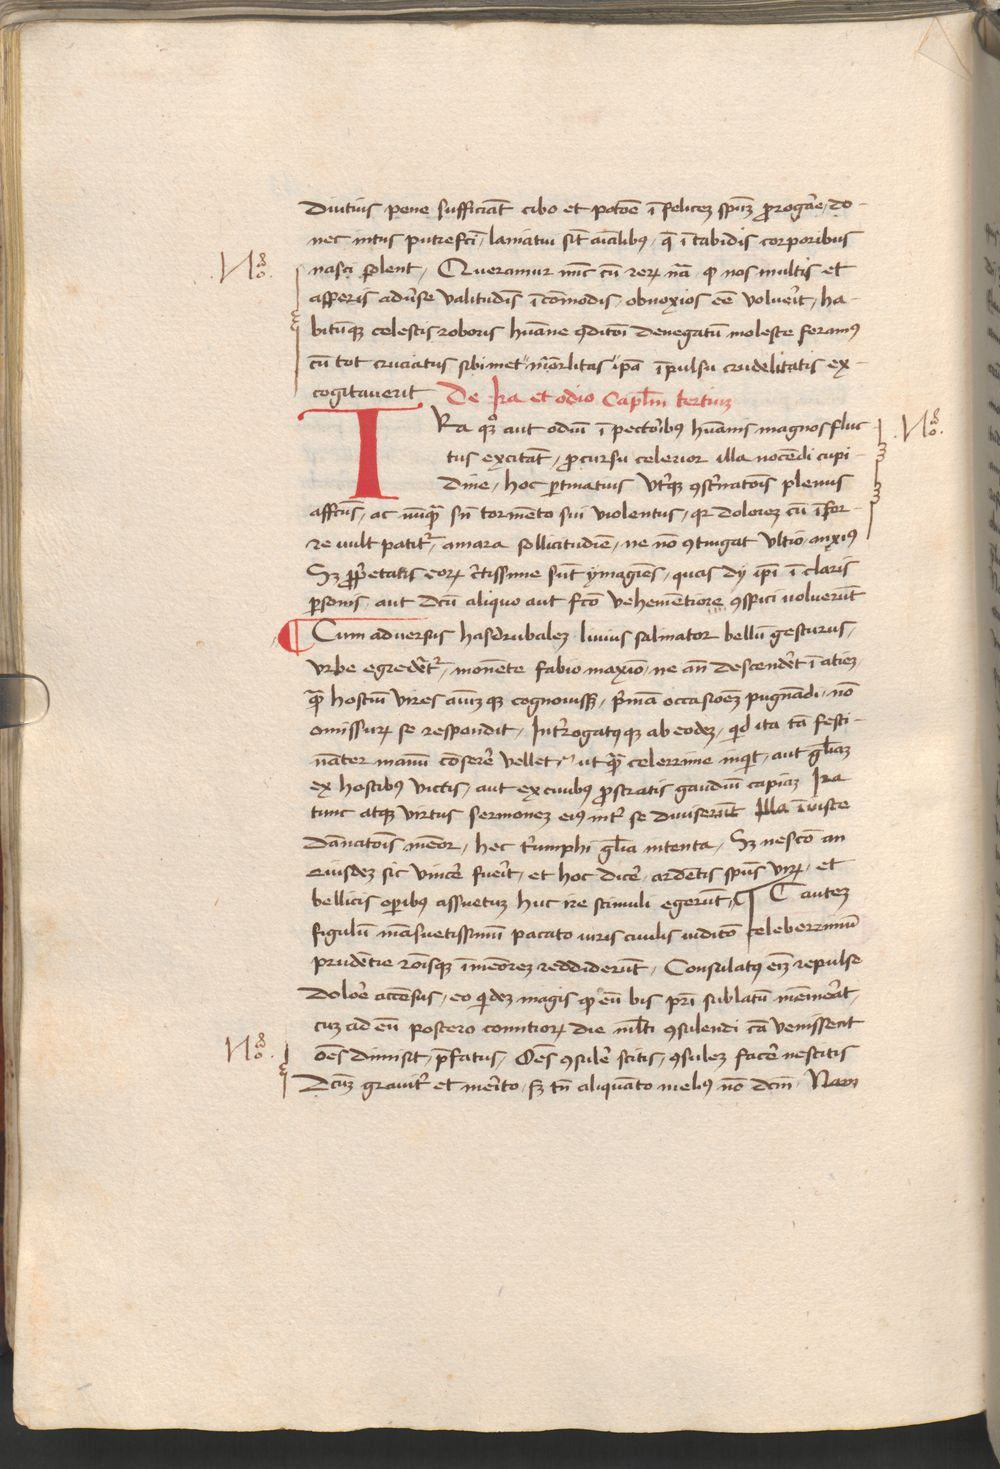 Diutius pene sufficiāt cibo et potōe ī felicez spūz prorogāre / do-
nec intus putrefcī / laniatui sīt aīalibꝰ / q̄ ī tabidis corporibus
nasci solent / Queramur nūc cū rerꝝ nā / ꝙ nos multis et
asperis adūse valitudīs īcōmodis / obnoxios eē voluerīt / ha-
bitūqꝫ celestis roboris hūane ꝯditōī denegatū moleste feramꝰ
cū tot cruciatus sibimet mōrlitas ipā īpulsu crudelitatis ex-
cogitauerit De Ira et odio Caplm̄ tertiuz
IRa qꝫ aut odiū ī pectoribꝰ hūanis magnos fluc
tus excitāt / procursu celerior illa nocēdi cupi-
dine / hoc ꝑtinatius Vtꝝqꝫ ꝯstr̄natōis plenus
affcūs / ac nūꝙ̄ sn̄ tormento sui violentus / qꝛ dolorez cū īfer-
re uult patit᷑ / amara sollicitudīe / ne nō ꝯtingat vltio / anxiꝰ
Sꝫ propetatis eorꝝ c̄tissime sūt ymagīes / quas dij ipī ī claris
ꝑsonis / aut dcū aliquo aut fcō vehemētiore ꝯspici uoluerūt
Cum aduersus hasdrubalez liuius salinator bellū gesturus /
vrbe egredēt᷑ / monēte fabio maxīo / ne an̄ descenderēt ī atiez
ꝙ̄ hostiū vires aīūzqꝫ cognouissꝫ / prīmā occasiōez pugnādi / nō
omissurꝝ se respondit / Int̄rogatꝰqꝫ ab eodez / qͥd ita tā festi-
nāter manū cōserē vellet / ut ꝙ̄ celerrime inqͥt / aut gl̄iaz
ex hostibus victis / aut ex ciuibus prostratis gaudiū capiaz Ira
tunc atqꝫ virtus sermonez eiꝰ int̄ se diuiserūt Illa īiuste
dānatōis mēor / hec tͥumphi gl̄ia intenta / Sꝫ nescō an
eiusdez sic vincē fuerīt / et hoc dicē / ardētis spūs virꝝ / et
bellicis oꝑibus assuetuz huc ire stimuli egerūt / C autez
figulū māsuetissimū pacato iuris ciuilis iuditō celeberrimū
prudētie rōisqꝫ īmēorez reddiderūt / Consulatꝰ eīz repulse
dolore accēsus / eo qͥdez magis ꝙ eū bis prī sublatū mēinerāt /
cuz ad eū postero comitiorꝝ die ml̄ti ꝯsulendi cā venissent
oēs dimisit / p̄fatus / Oēs ꝯsulē scitis / ꝯsulez facē nescitis
Dcūz grauit̄ et merito / sꝫ tn̄ aliquāto meliꝰ nō dcm̄ / Nam